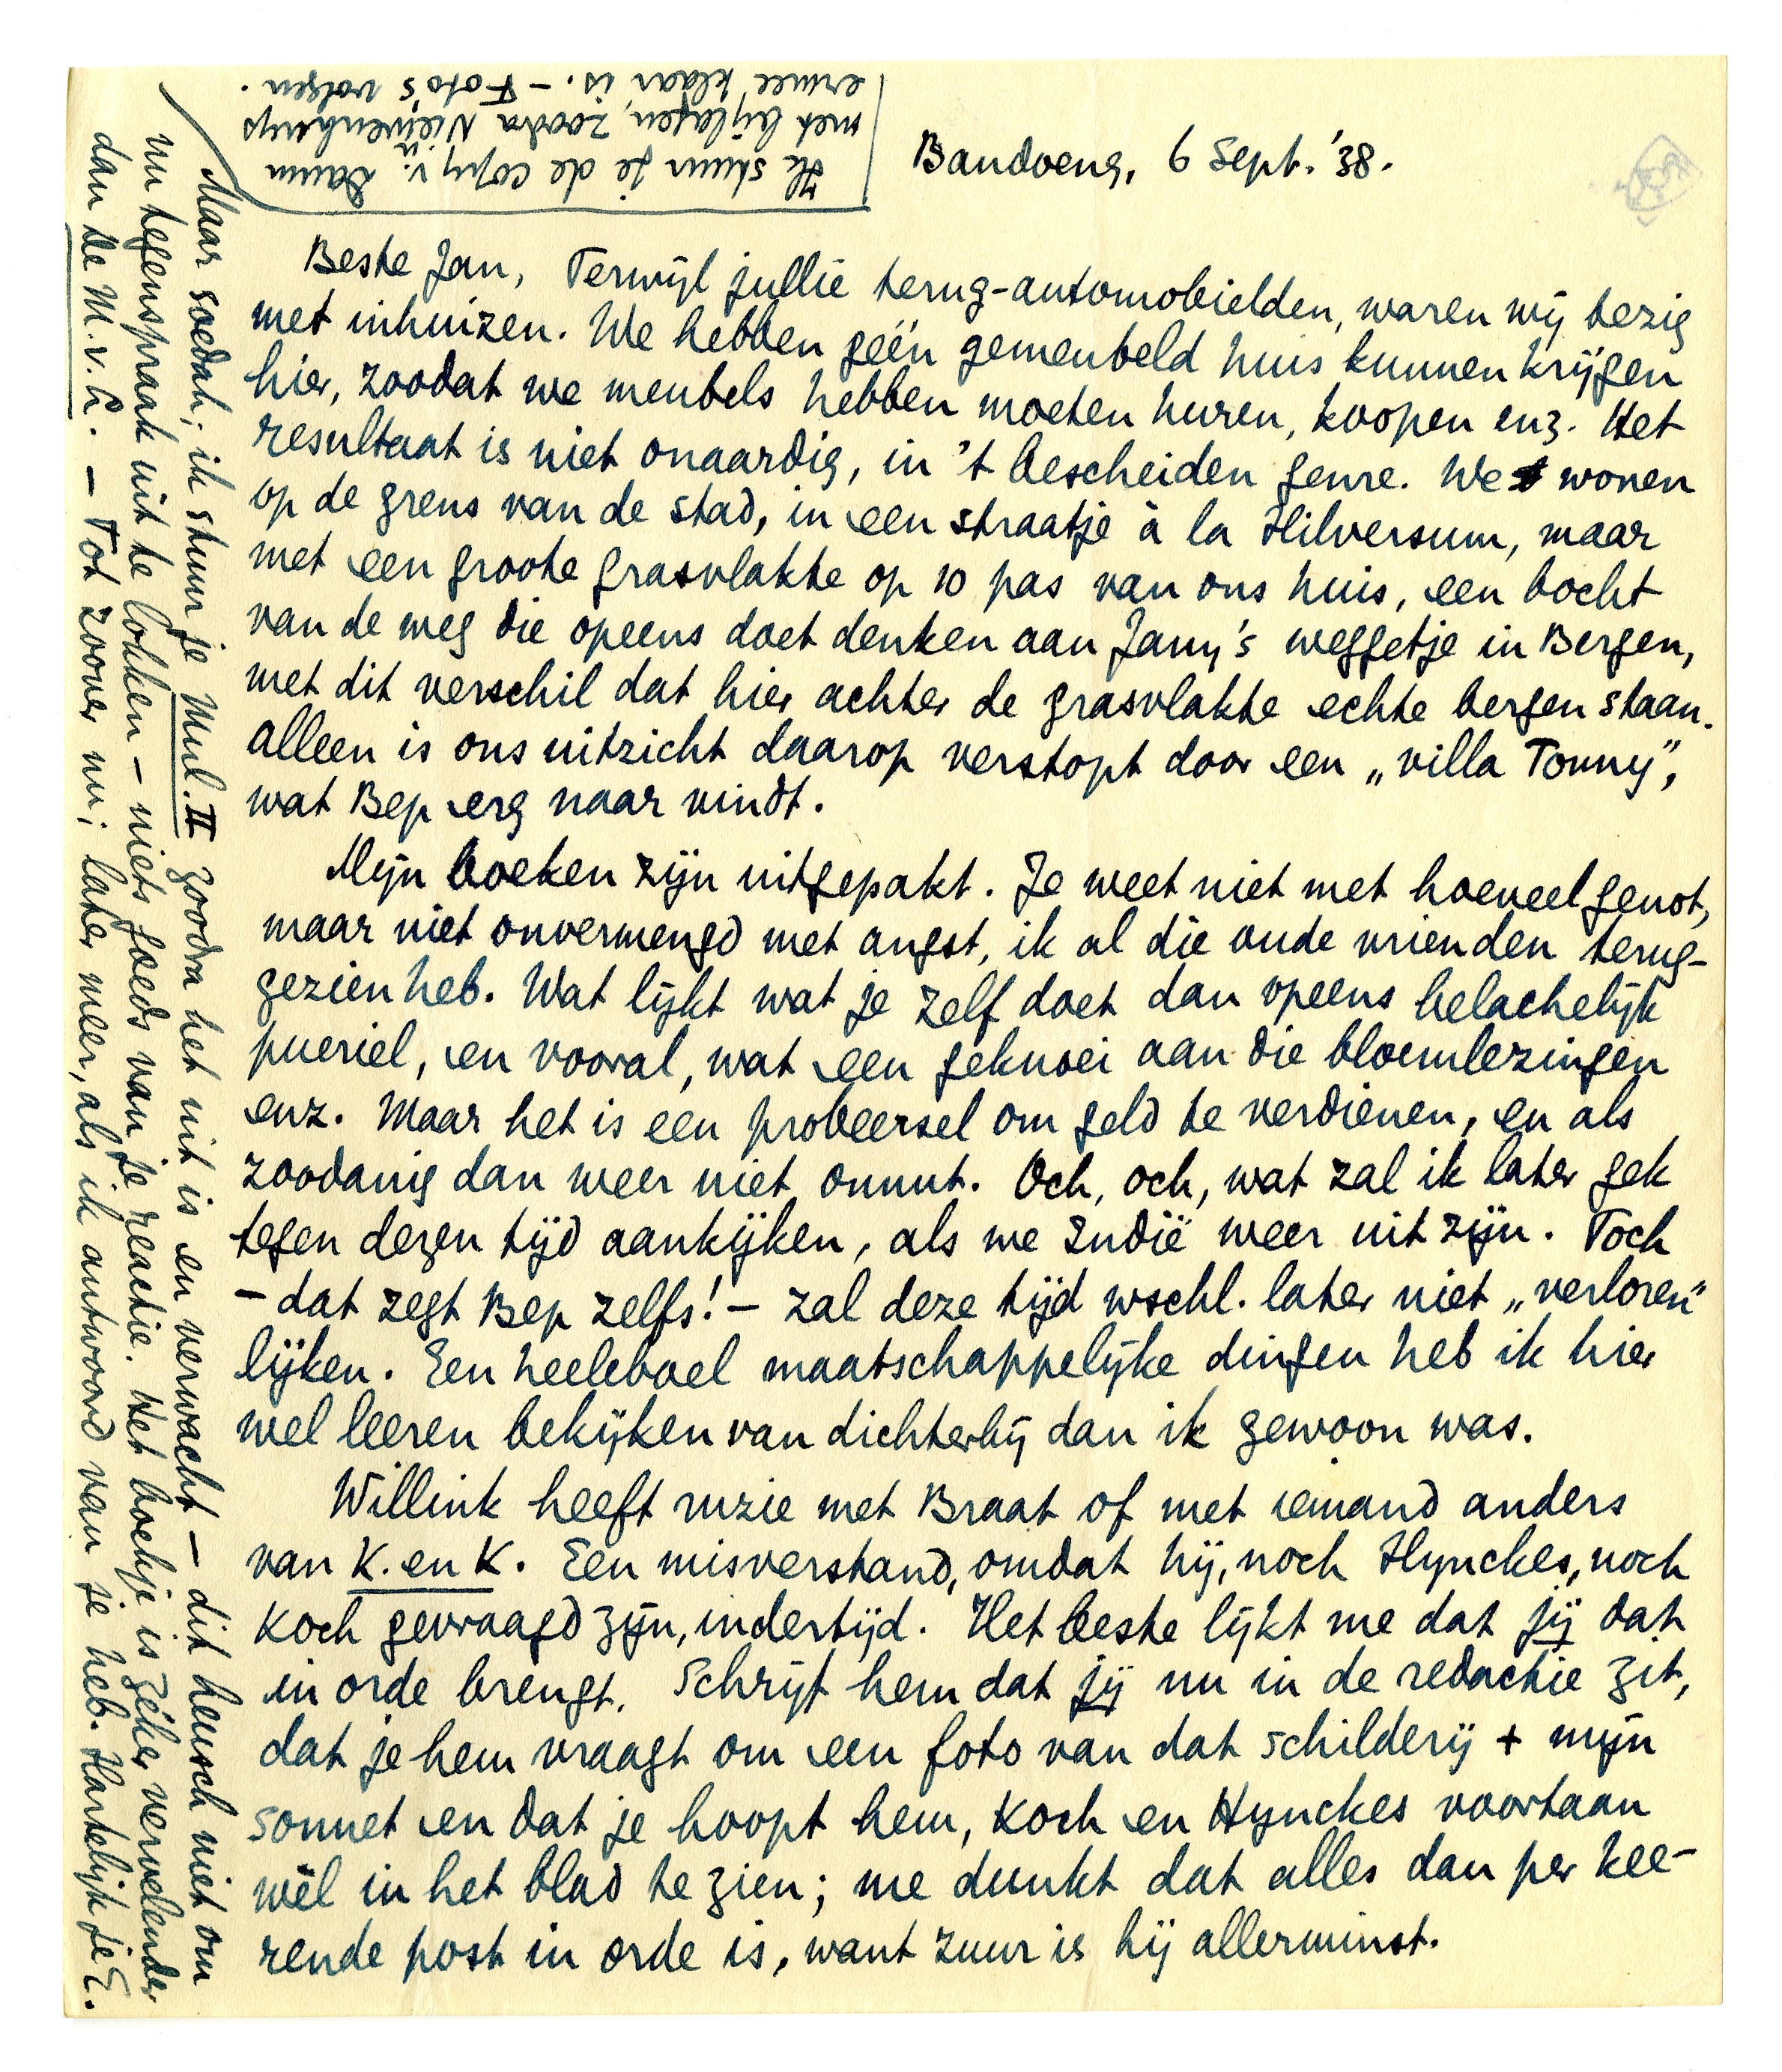 Bandoeng, 6 Sept. '38.
Beste Jan, Terwijl jullie terug-automobielden, waren wij bezig
met inhuizen. We hebben géén gemeubeld huis kunnen krijgen
hier, zoodat we meubels hebben moeten huren, koopen enz. Het
resultaat is niet onaardig, in 't bescheiden genre. We wonen
op de grens van de stad, in een straatje à la Hilversum, maar
met een groote grasvlakte op 10 pas van ons huis, een bocht
van de weg die opeens doet denken aan Jany's weggetje in Bergen,
met dit verschil dat hier achter de grasvlakte echte bergen staan.
Alleen is ons uitzicht daarop verstopt door een „villa Tonny”,
wat Bep erg naar vindt.
Mijn boeken zijn uitgepakt. Je weet niet met hoeveel genot,
maar niet onvermengd met angst, ik al die oude vrienden terug-
gezien heb. Wat lijkt wat je zelf doet dan opeens belachelijk
pueriel, en vooral, wat een geknoei aan die bloemlezingen
enz. Maar het is een probeersel om geld te verdienen, en als
zoodanig dan weer niet onnut. Och, och, wat zal ik later gek
tegen dezen tijd aankijken, als we Indië weer uit zijn. Toch
– dat zegt Bep zelfs! – zal deze tijd wschl. later niet „verloren”
lijken. Een heeleboel maatschappelijke dingen heb ik hier
wel leeren bekijken van dichterbij dan ik gewoon was.
Willink heeft ruzie met Braat of met iemand anders
van K. en K. Een misverstand, omdat hij, noch Hynckes, noch
Koch gevraagd zijn, indertijd. Het beste lijkt me dat jij dat
in orde brengt. Schrijf hem dat jij nu in de redactie zit,
dat je hem vraagt om een foto van dat schilderij + mijn
sonnet en dat je hoopt hem, Koch en Hynckes voortaan
wèl in het blad te zien; me dunkt dat alles dan per kee-
rende post in orde is, want zuur is hij allerminst.
Maar soedah; ik stuur je Mul. II zoodra het uit is en verwacht – dit heusch niet om
nu tegenspraak uit te lokken – niets goeds van je reactie. Het boekje is zéker vervelender
dan de M.v.L. – Tot zoover nu; later meer, als ik antwoord van je heb. Hartelijk je E.
Ik stuur je de copy v. Daum
met bijlagen, zoodra Nieuwenhuys
ermee klaar is. – Foto's volgen.